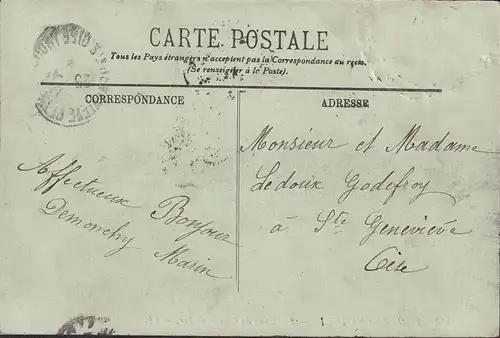 CARTE POSTALE
Tous les Pays étrangers n'acceptent pas la Correspondance au recto.
(Se renseigner à la Poste).
CORRESPONDANCE
ADRESSE
Affectueux Bonjour
Demonchy Marin
Monsieur et Madame
Ledoux Godefroy
à Ste Geneviève
Oise